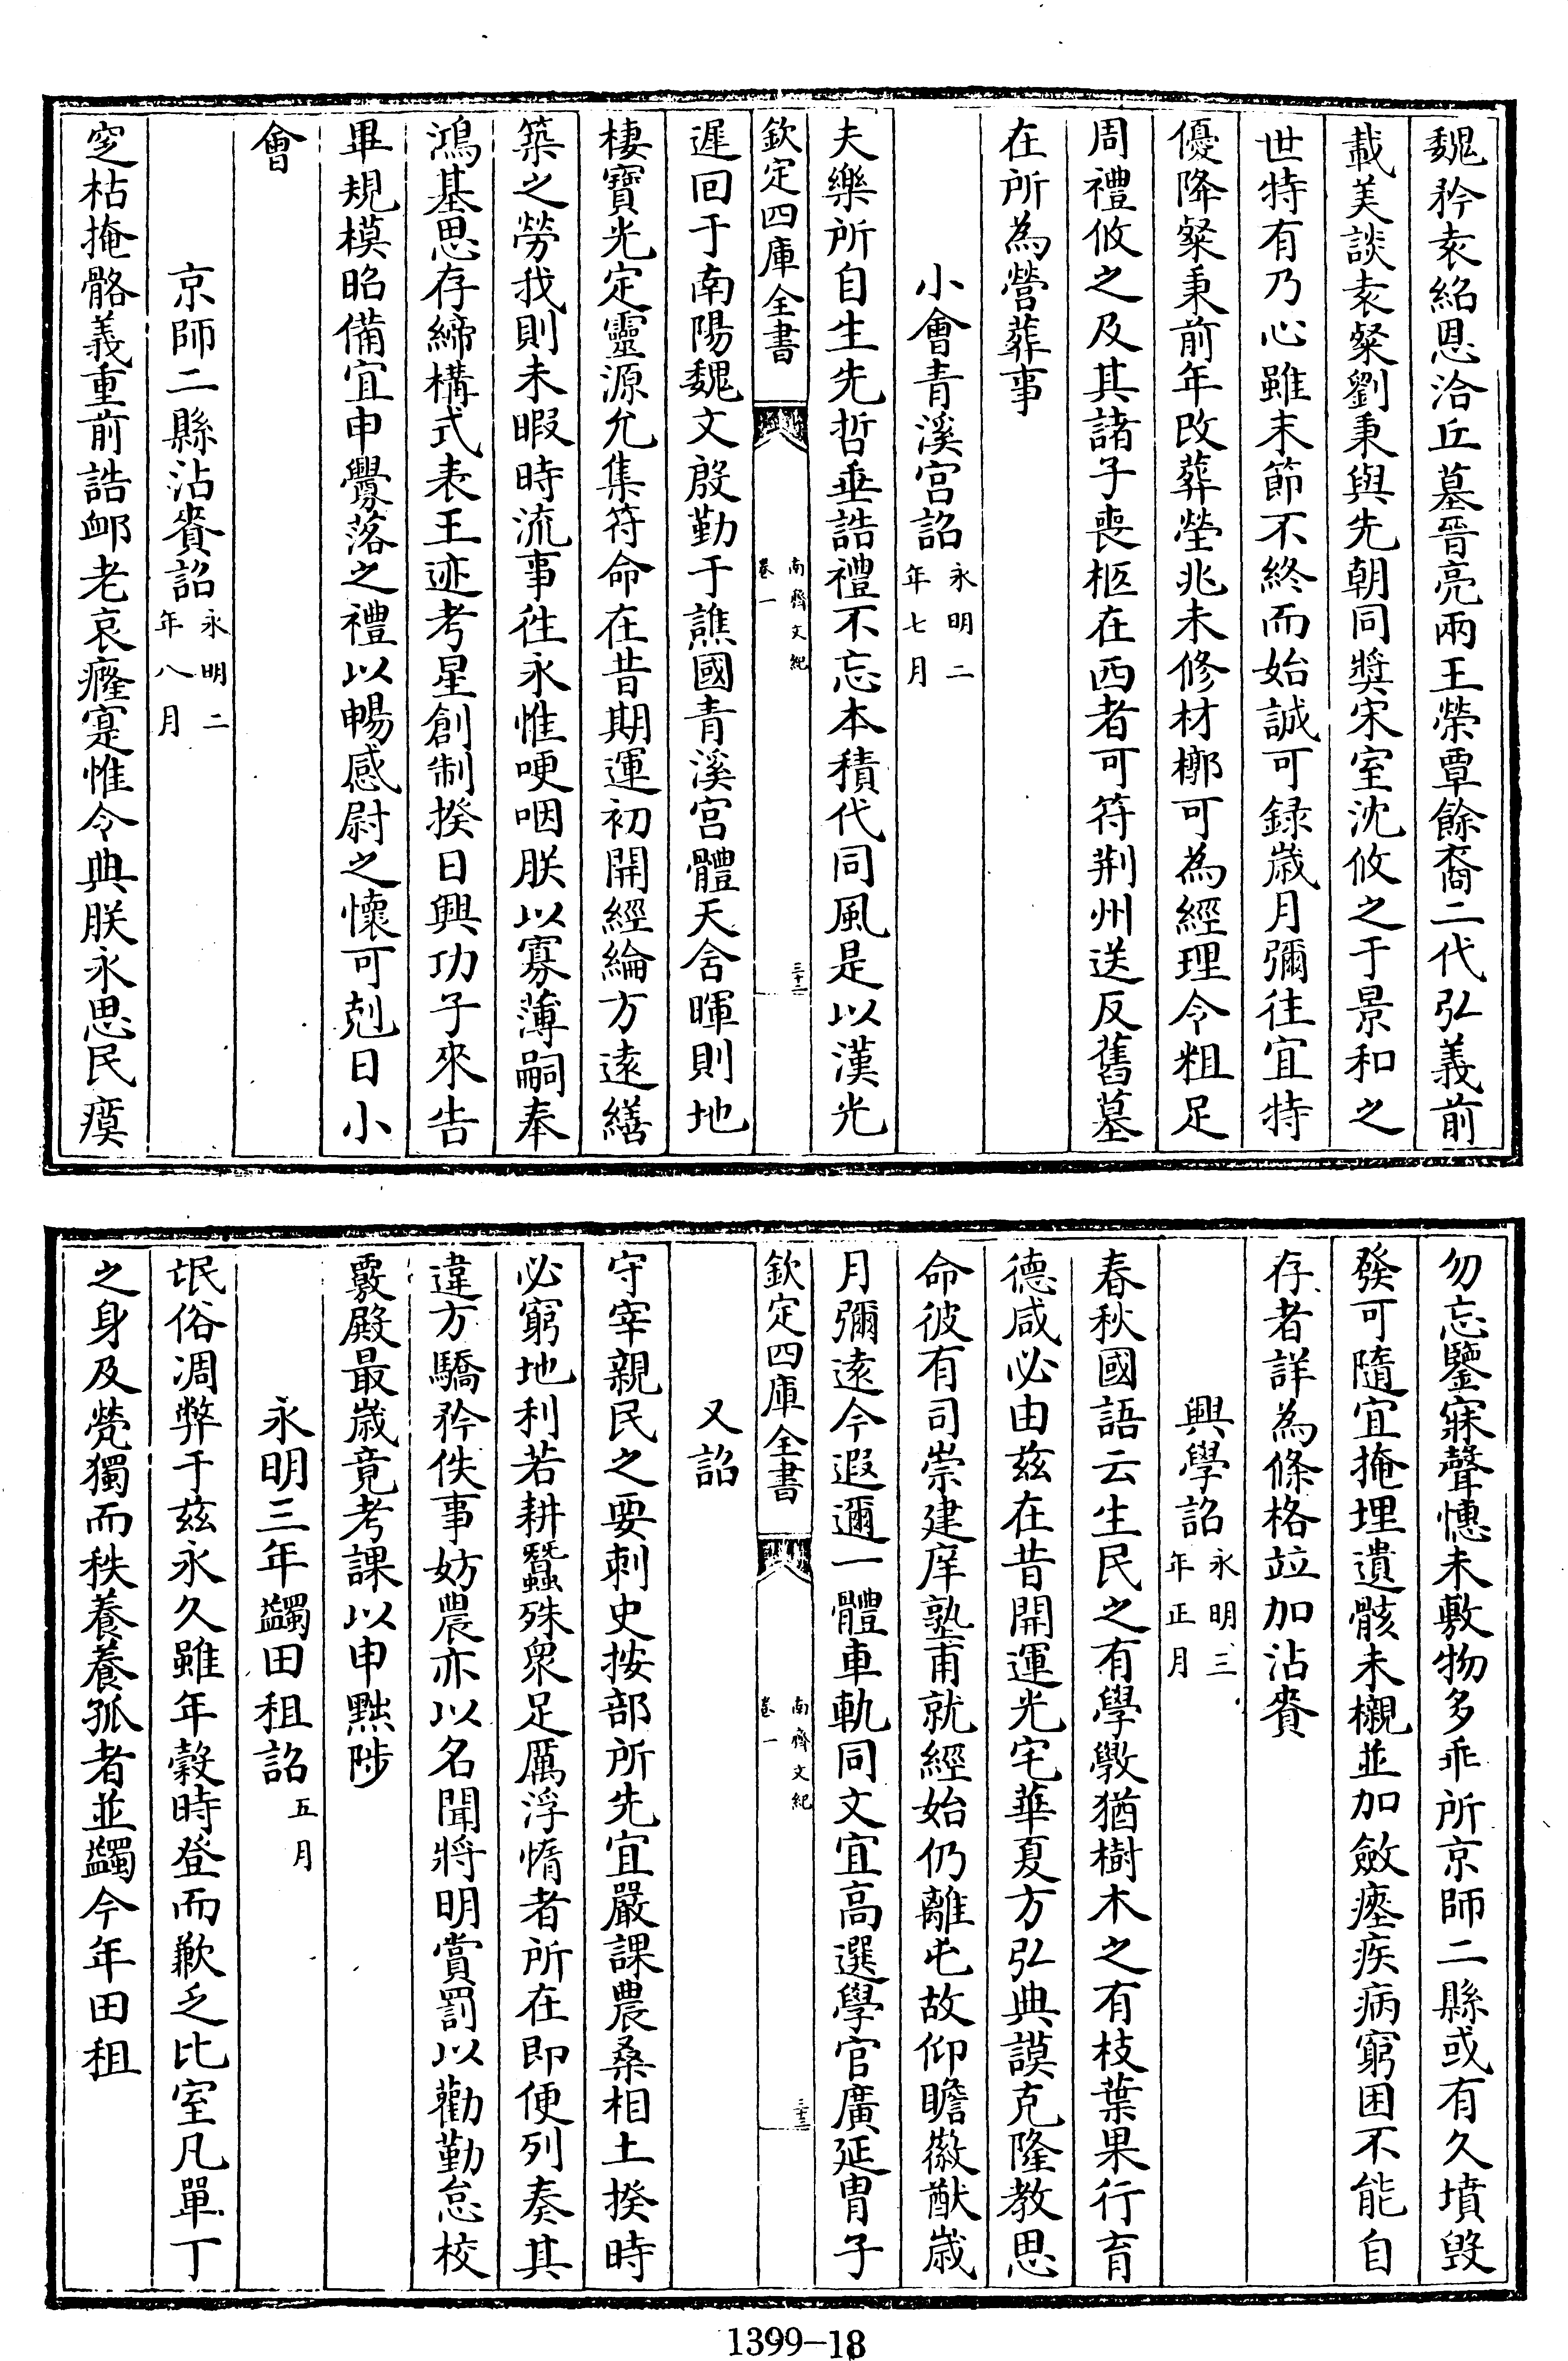 魏矜袁紹恩洽丘墓晉亮兩王榮覃餘裔二代弘義前
載美談袁粲劉秉與先朝同奬宋室沈攸之于景和之
世特有乃心雖末節不終而始誠可録歲月彌往宜特
優降粲秉前年改葬塋兆未修材槨可為經理令粗足
周禮攸之及其諸子喪柩在西者可符荆州送反舊墓
在所為營葬事
小會青溪宫詔永明二年七月
夫樂所自生先哲垂誥禮不忘本積代同風是以漢光
欽定四庫全書
南齊文紀
卷一
三十二
遲回于南陽魏文殷勤于譙國青溪宫體天含暉則地
棲寶光定靈源允集符命在昔期運初開經綸方遠繕
築之勞我則未暇時流事徃永惟哽咽朕以寡薄嗣奉
鴻基思存締構式表王迹考星創制揆日興功子來告
畢規模昭備宜申釁落之禮以暢感尉之懷可剋日小
會
京師二縣沾賚詔永明二年八月
窆枯掩骼義重前誥䘏老哀癃寔惟令典朕永思民瘼
勿忘鑒寐聲憓未敷物多乖所京師二縣或有久墳毁
發可隨宜掩埋遺骸未櫬並加斂瘞疾病窮困不能自
存者詳為條格竝加沾賚
興學詔永明三年正月
春秋國語云生民之有學斆猶樹木之有枝葉果行育
德咸必由兹在昔開運光宅華夏方弘典謨克隆教思
命彼有司崇建庠塾甫就經始仍離屯故仰瞻徽猷歲
月彌遠今遐邇一體車軌同文宜高選學官廣延胄子
欽定四庫全書
南齊文紀
卷一
三十三
又詔
守宰親民之要刺史按部所先宜嚴課農桑相土揆時
必窮地利若耕蠶殊衆足厲浮惰者所在即便列奏其
違方驕矜佚事妨農亦以名聞將明賞罰以勸勤怠校
覈殿最歲竟考課以申黜陟
永明三年蠲田租詔五月
氓俗凋弊于兹永久雖年榖時登而歉乏比室凡單丁
之身及煢獨而秩養養孤者並蠲今年田租
1399-18